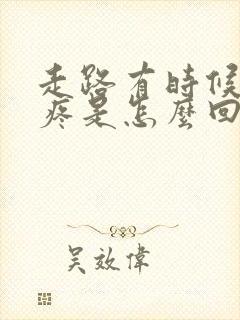 走路有時候
疼是怎麼回
吴效偉